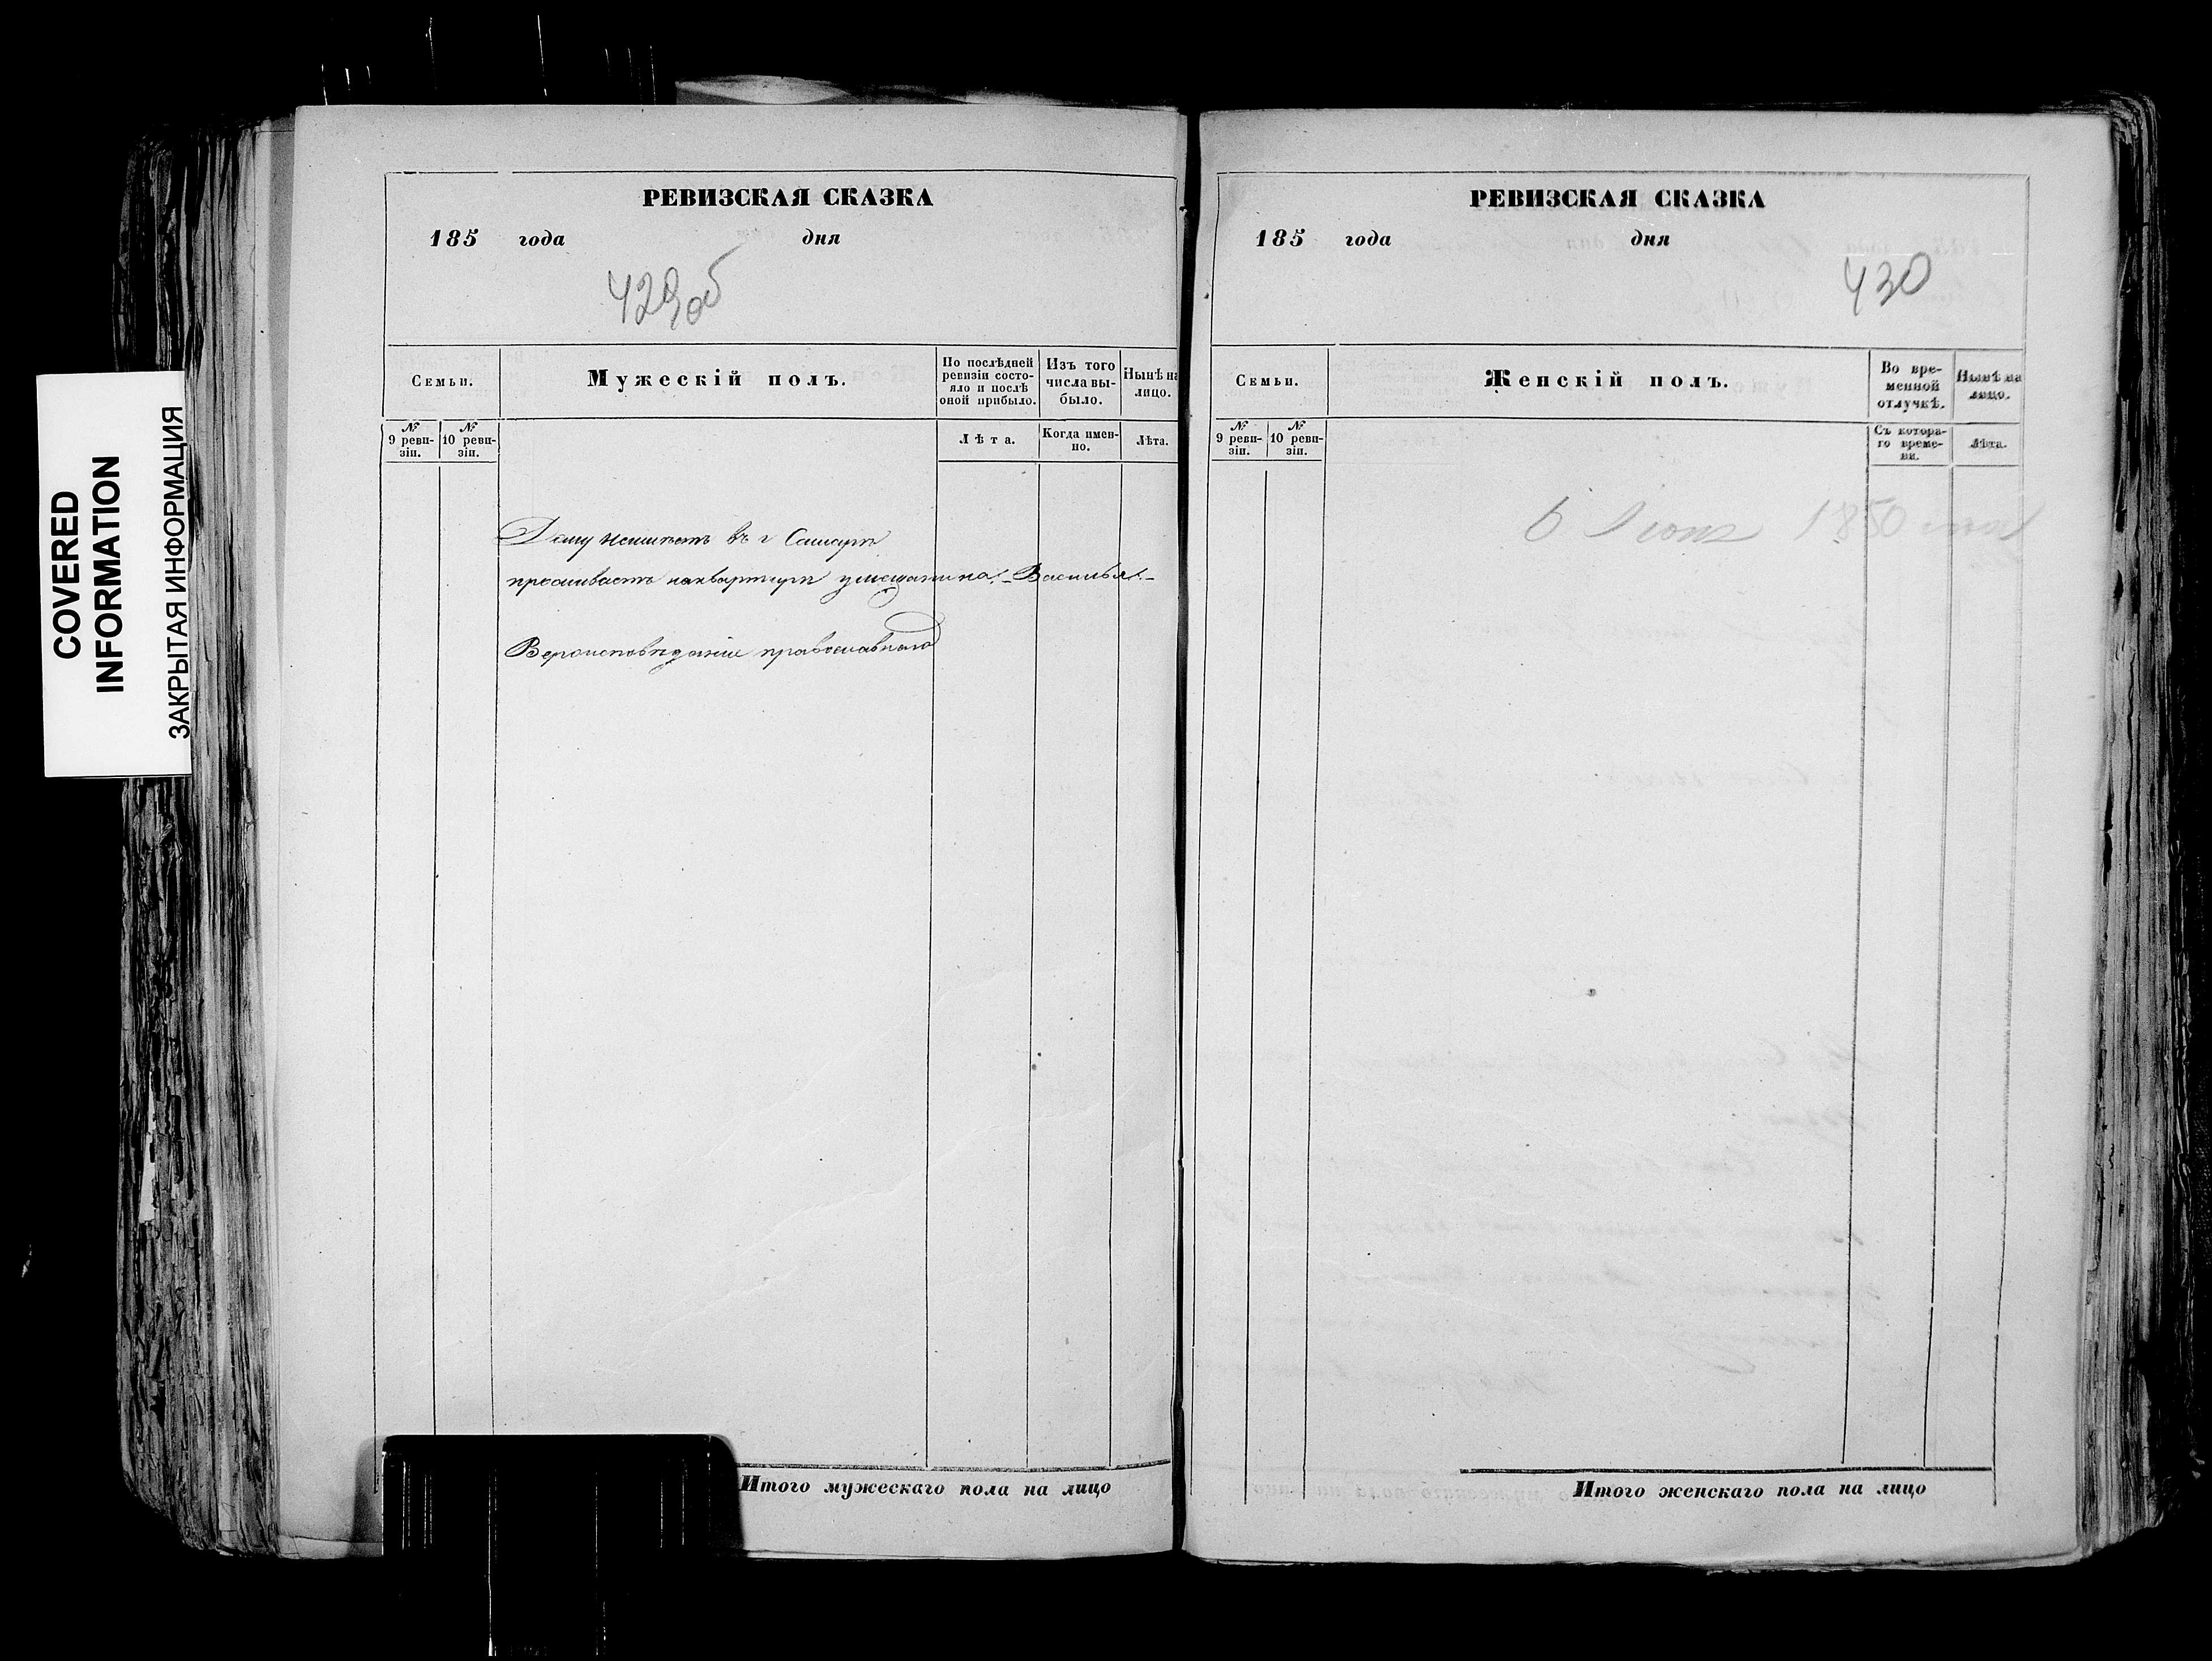 COVERED
INFORMATION
ЗАКРЫТАЯ ИНФОРМАЦИЯ
РЕВИЗСКАЯ СКАЗКА
185 года дня
429об
Семьи.
Мужескій полъ.
По послѣдней
ревизіи состо-
яло и послѣ
оной прибыло.
Изъ того
числа вы-
было.
Нынѣ на
лицо.
№
9 реви-
зіи.
№
10 реви-
зіи.
Лѣта.
Когда имен-
но.
Лѣта.
Дому неимѣетъ въ г Самарѣ
проживаетъ наквартирѣ умещанина Василья
Вероисповѣданіе православнаго
Итого мужескаго пола на лицо
РЕВИЗСКАЯ СКАЗКА
185 года дня
430
Семьи.
Женскій полъ.
Во вре-
менной
отлучкѣ.
Нынѣ на
лицо.
№
9 реви-
зіи.
№
10 реви-
зіи.
Съ котора-
го време-
ни.
Лѣта.
6 1850
Итого женскаго пола на лицо